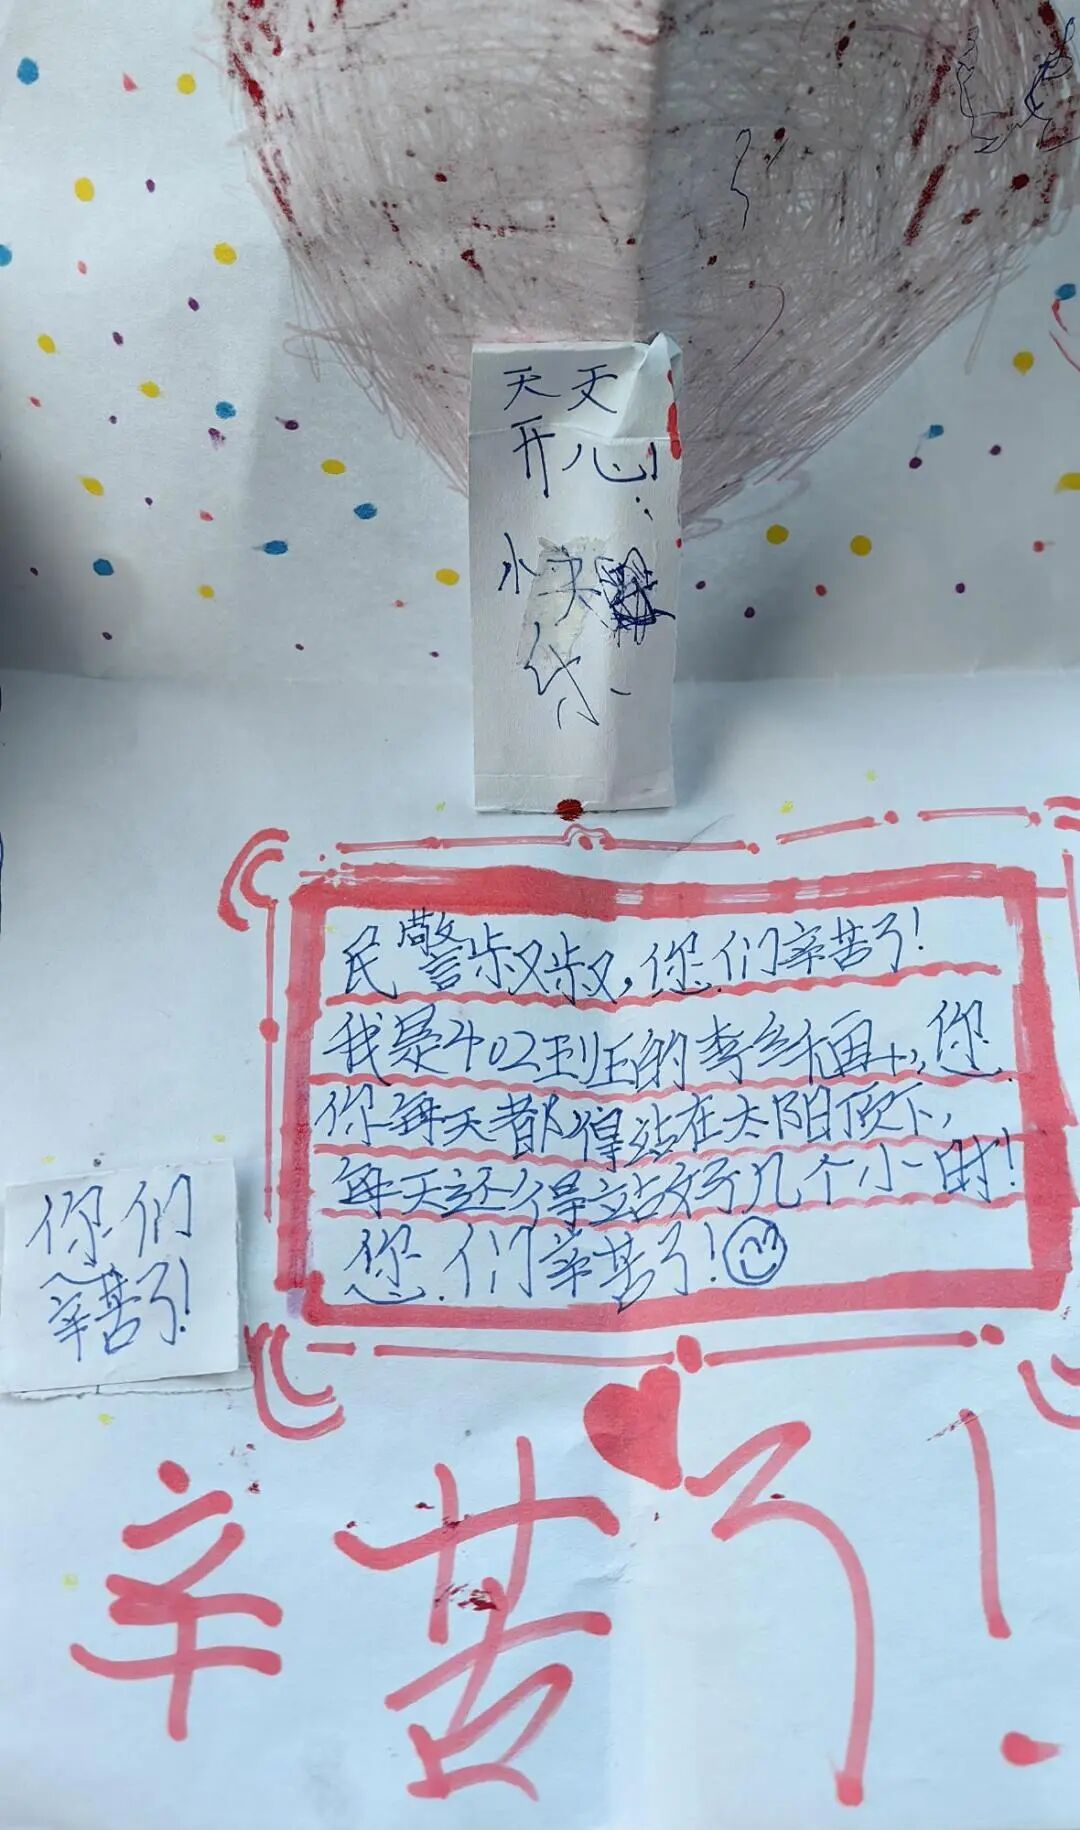 天天
开心!
小
民警叔叔,您们辛苦了!
我是402班的李丝雨,您
你每天都得站在太阳底下,
每天还得站好几个小时!
您们辛苦了!
你们
辛苦了!
辛苦了!